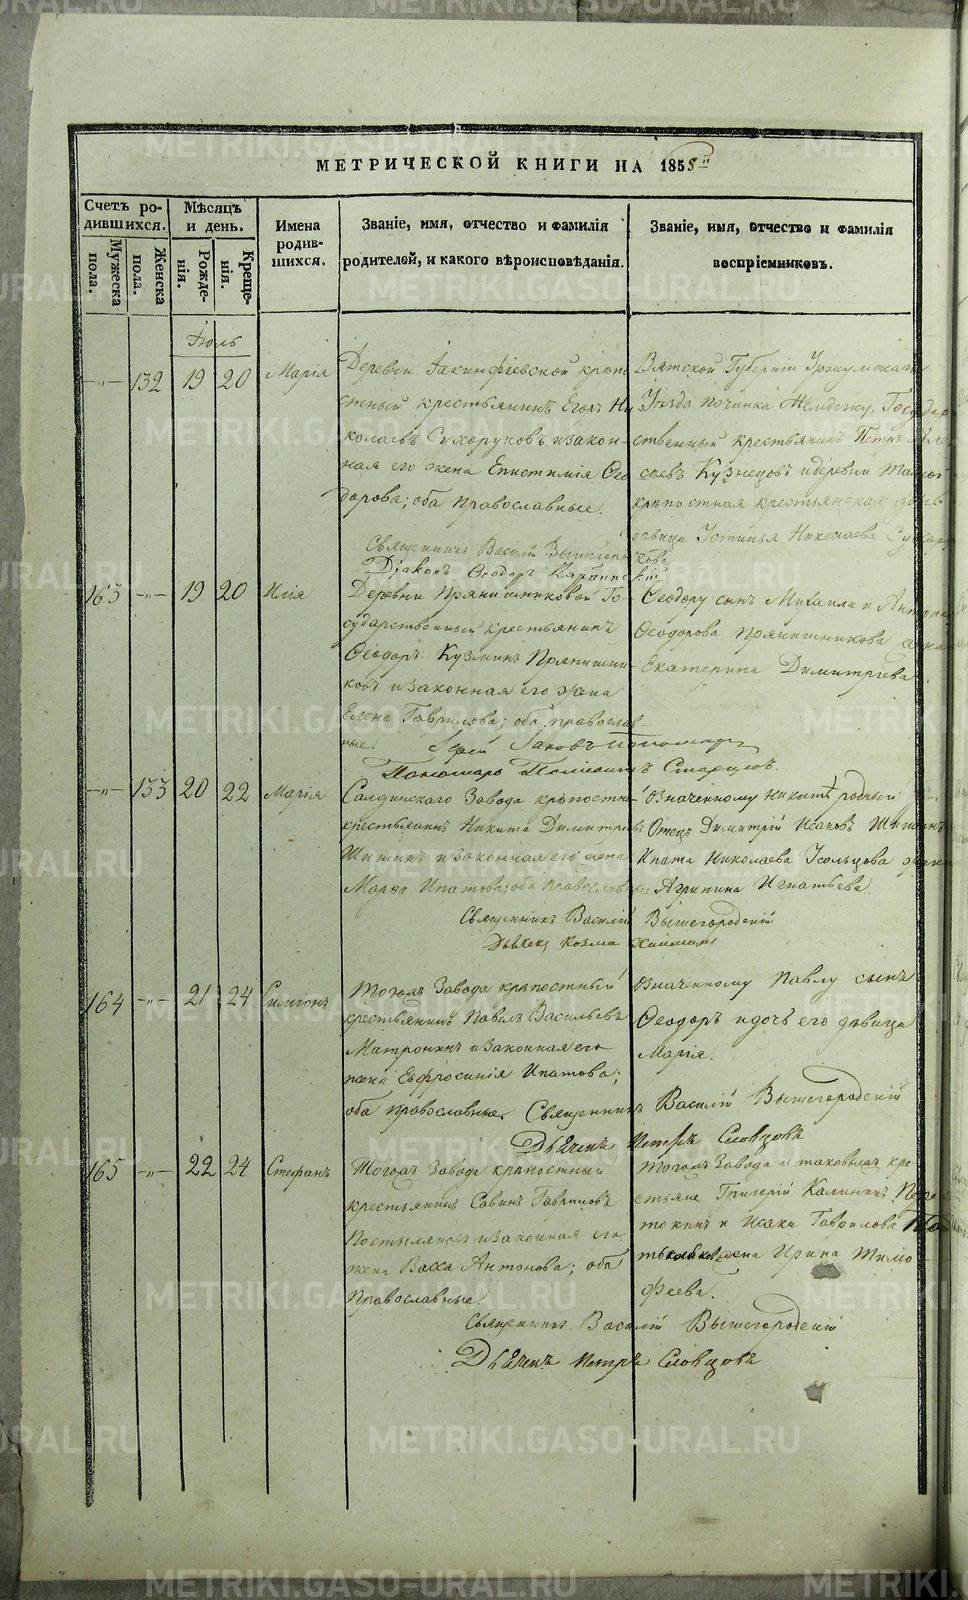 МЕТРИЧЕСКОЙ КНИГИ НА 1855
Счетъ ро-
дившихся.
Мѣсяцъ
и день.
Имена
родив-
шихся.
Званіе, имя, отчество и фамилія
родителей, и какого вѣроисповѣданія.
Званіе, имя, отчество и фамилія
воспріемниковъ.
Мужеска
пола.
Женска
пола.
Рожде-
нія.
Креще-
нія.
Іюль
—„— 132 19 20 Марія
Деревни
стный крестьянинъ Егоръ Ни
колаевъ Сухоруковъ и закон-
ная его жена Епистимія Ѳео
дорова; оба православные.
Вятской Губерніи Уржумскаго
Уѣзда починка Государ
ственный крестьянинъ Петръ
Кузнецовъ и деревни
крѣпостная крестьянская
дѣвица Устинья Николаева Сухору
кова
Священникъ Василій Вышегородскій
Діаконъ Ѳеодоръ
163 —„— 19 20 Илія
Деревни Прянишниковой Го
сударственный крестьянинъ
Ѳеодоръ Кузминъ Прянишни
ковъ и законная его жена
Елена Гаврилова; оба православ-
ные.
Ѳеодору сынъ Михаилъ и
Ѳеодорова Прянишникова жена
Екатерина Димитріева.
Іерей Іаковъ Пономаревъ
Пономарь Старцовъ.
—„— 133 20 22 Марія
Салдинскаго Завода крѣпостн
крестьянинъ Никита Димитріевъ
Шишинъ и законная его жена
Марѳа Ипатова; оба православные
Означенному Никитѣ родный
Отецъ Димитрій Исаковъ Шишинъ
Ипата Николаева Усольцова жена
Агрипина Игнатьева.
Священникъ Василій Вышегородскій
Дьячекъ Козма
164 —„— 21 24 Симеонъ
Тогожъ Завода крѣпостный
крестьянинъ Павелъ Васильевъ
Матронинъ и законная его
жена Евфросинія Ипатова;
оба православные.
Означенному Павлу сынъ
Ѳеодоръ и дочь его дѣвица
Марія.
Священникъ Василій Вышегородскій
Дьячекъ Петръ Словцовъ
165 —„— 22 24 Стефанъ
Тогожъ Завода крѣпостный
крестьянинъ Савинъ Гавриловъ
Постыляковъ и законная его
жена Васса Антонова; оба
православные.
Тогожъ Завода и таковыежъ кре
стьяне Григорій Калининъ
и Исака Гаврилова
жена Ирина Тимо
феева.
Священникъ Василій Вышегородскій
Дьячекъ Петръ Словцовъ
METRIKI.GASO-URAL.RU